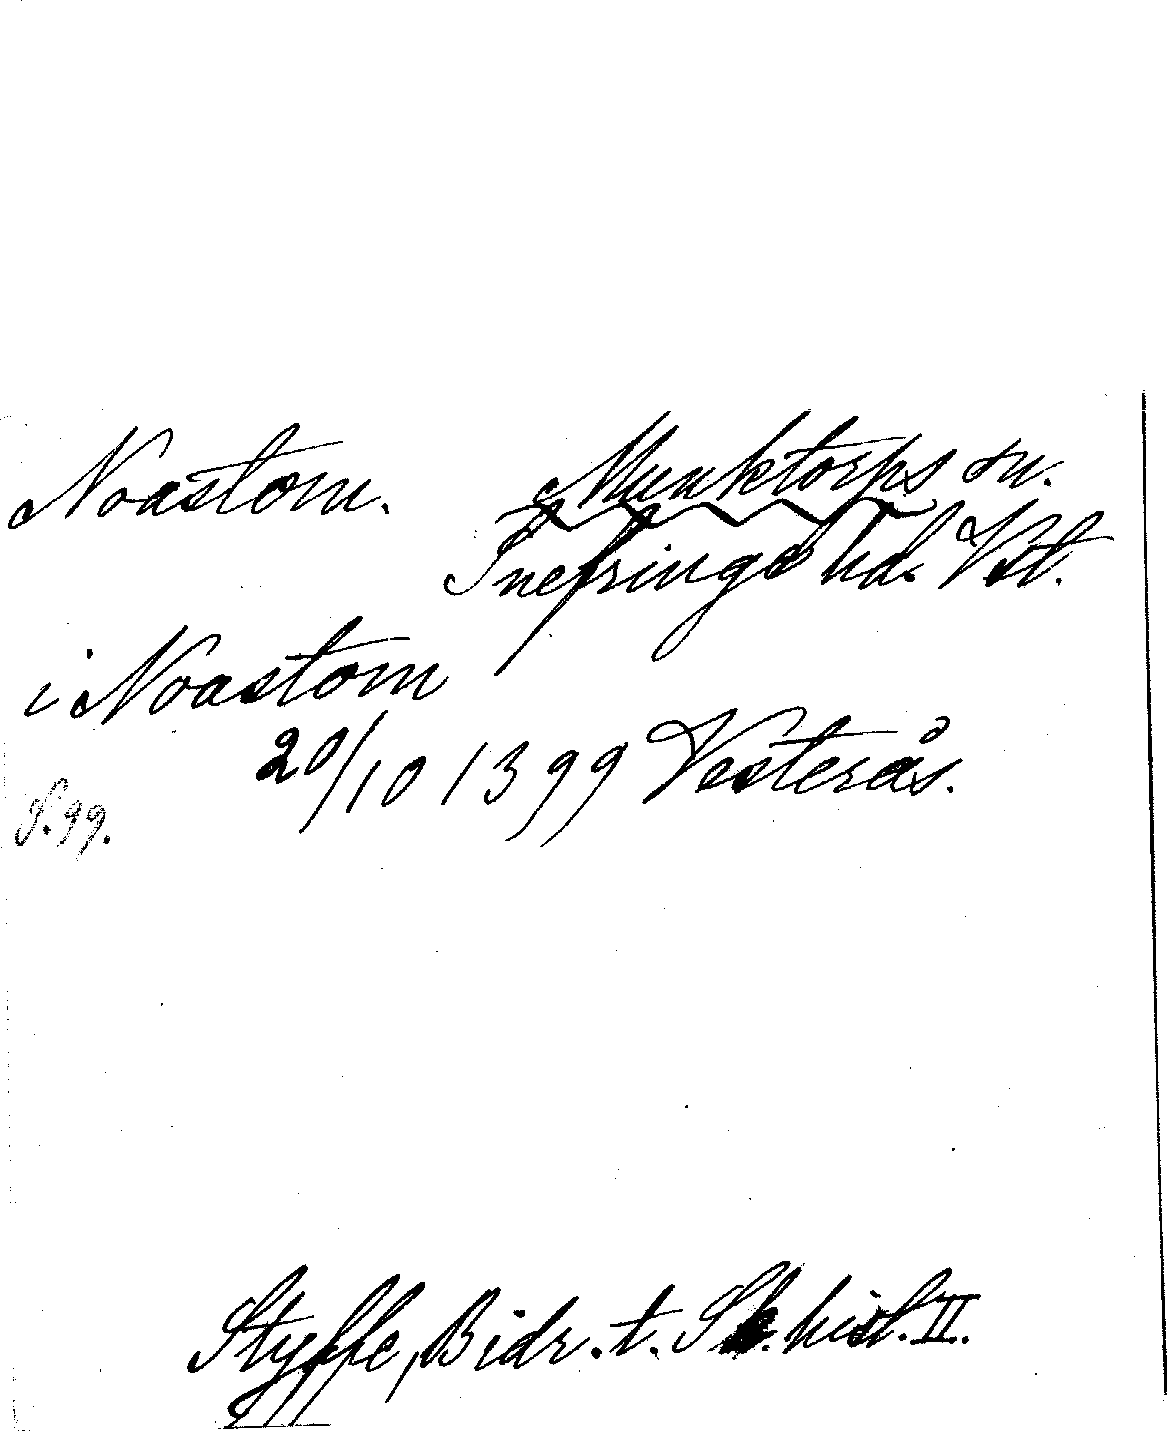 Noastom. Munktorps sn.
Snefringe hd. Vstl.
i Noastom
20/10 1399 Vesterås.
S. 99.
Styffe, Bidr. t. Sk. hist. II.